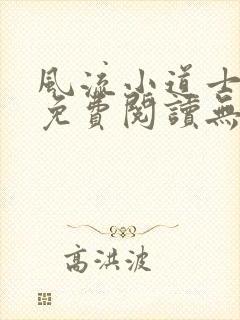 風流小道士
免費閱讀無
高洪波